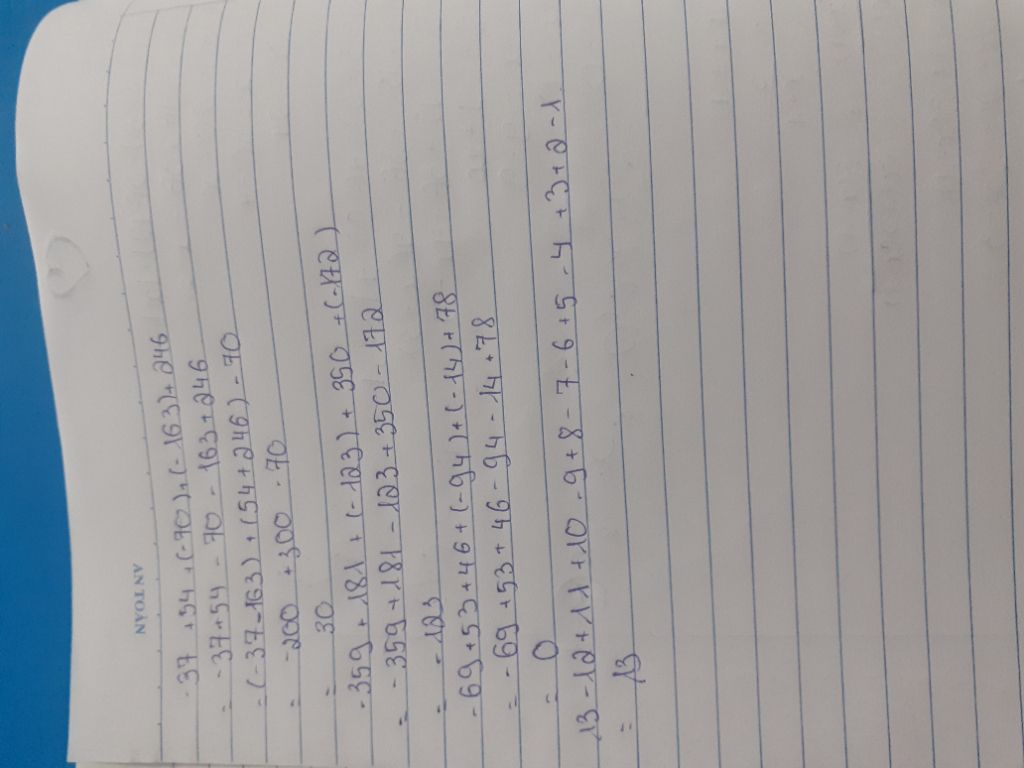 AN TOAN
-37 +54 +(-70)+(-163)+246
= -37+54 - 70 - 163+246
= (-37-163) + (54+246) - 70
= -200 +300 -70
= 30
-359 + 181 + (-123) + 350 + (-172)
= -359+181 - 123 +350 - 172
= -123
-69+53+46+(-94)+(-14)+78
= -69+53+46 - 94 - 14+78
= 0
13 -12+11+10 -9+8 - 7 - 6+5 -4 +3+2 -1
= 13